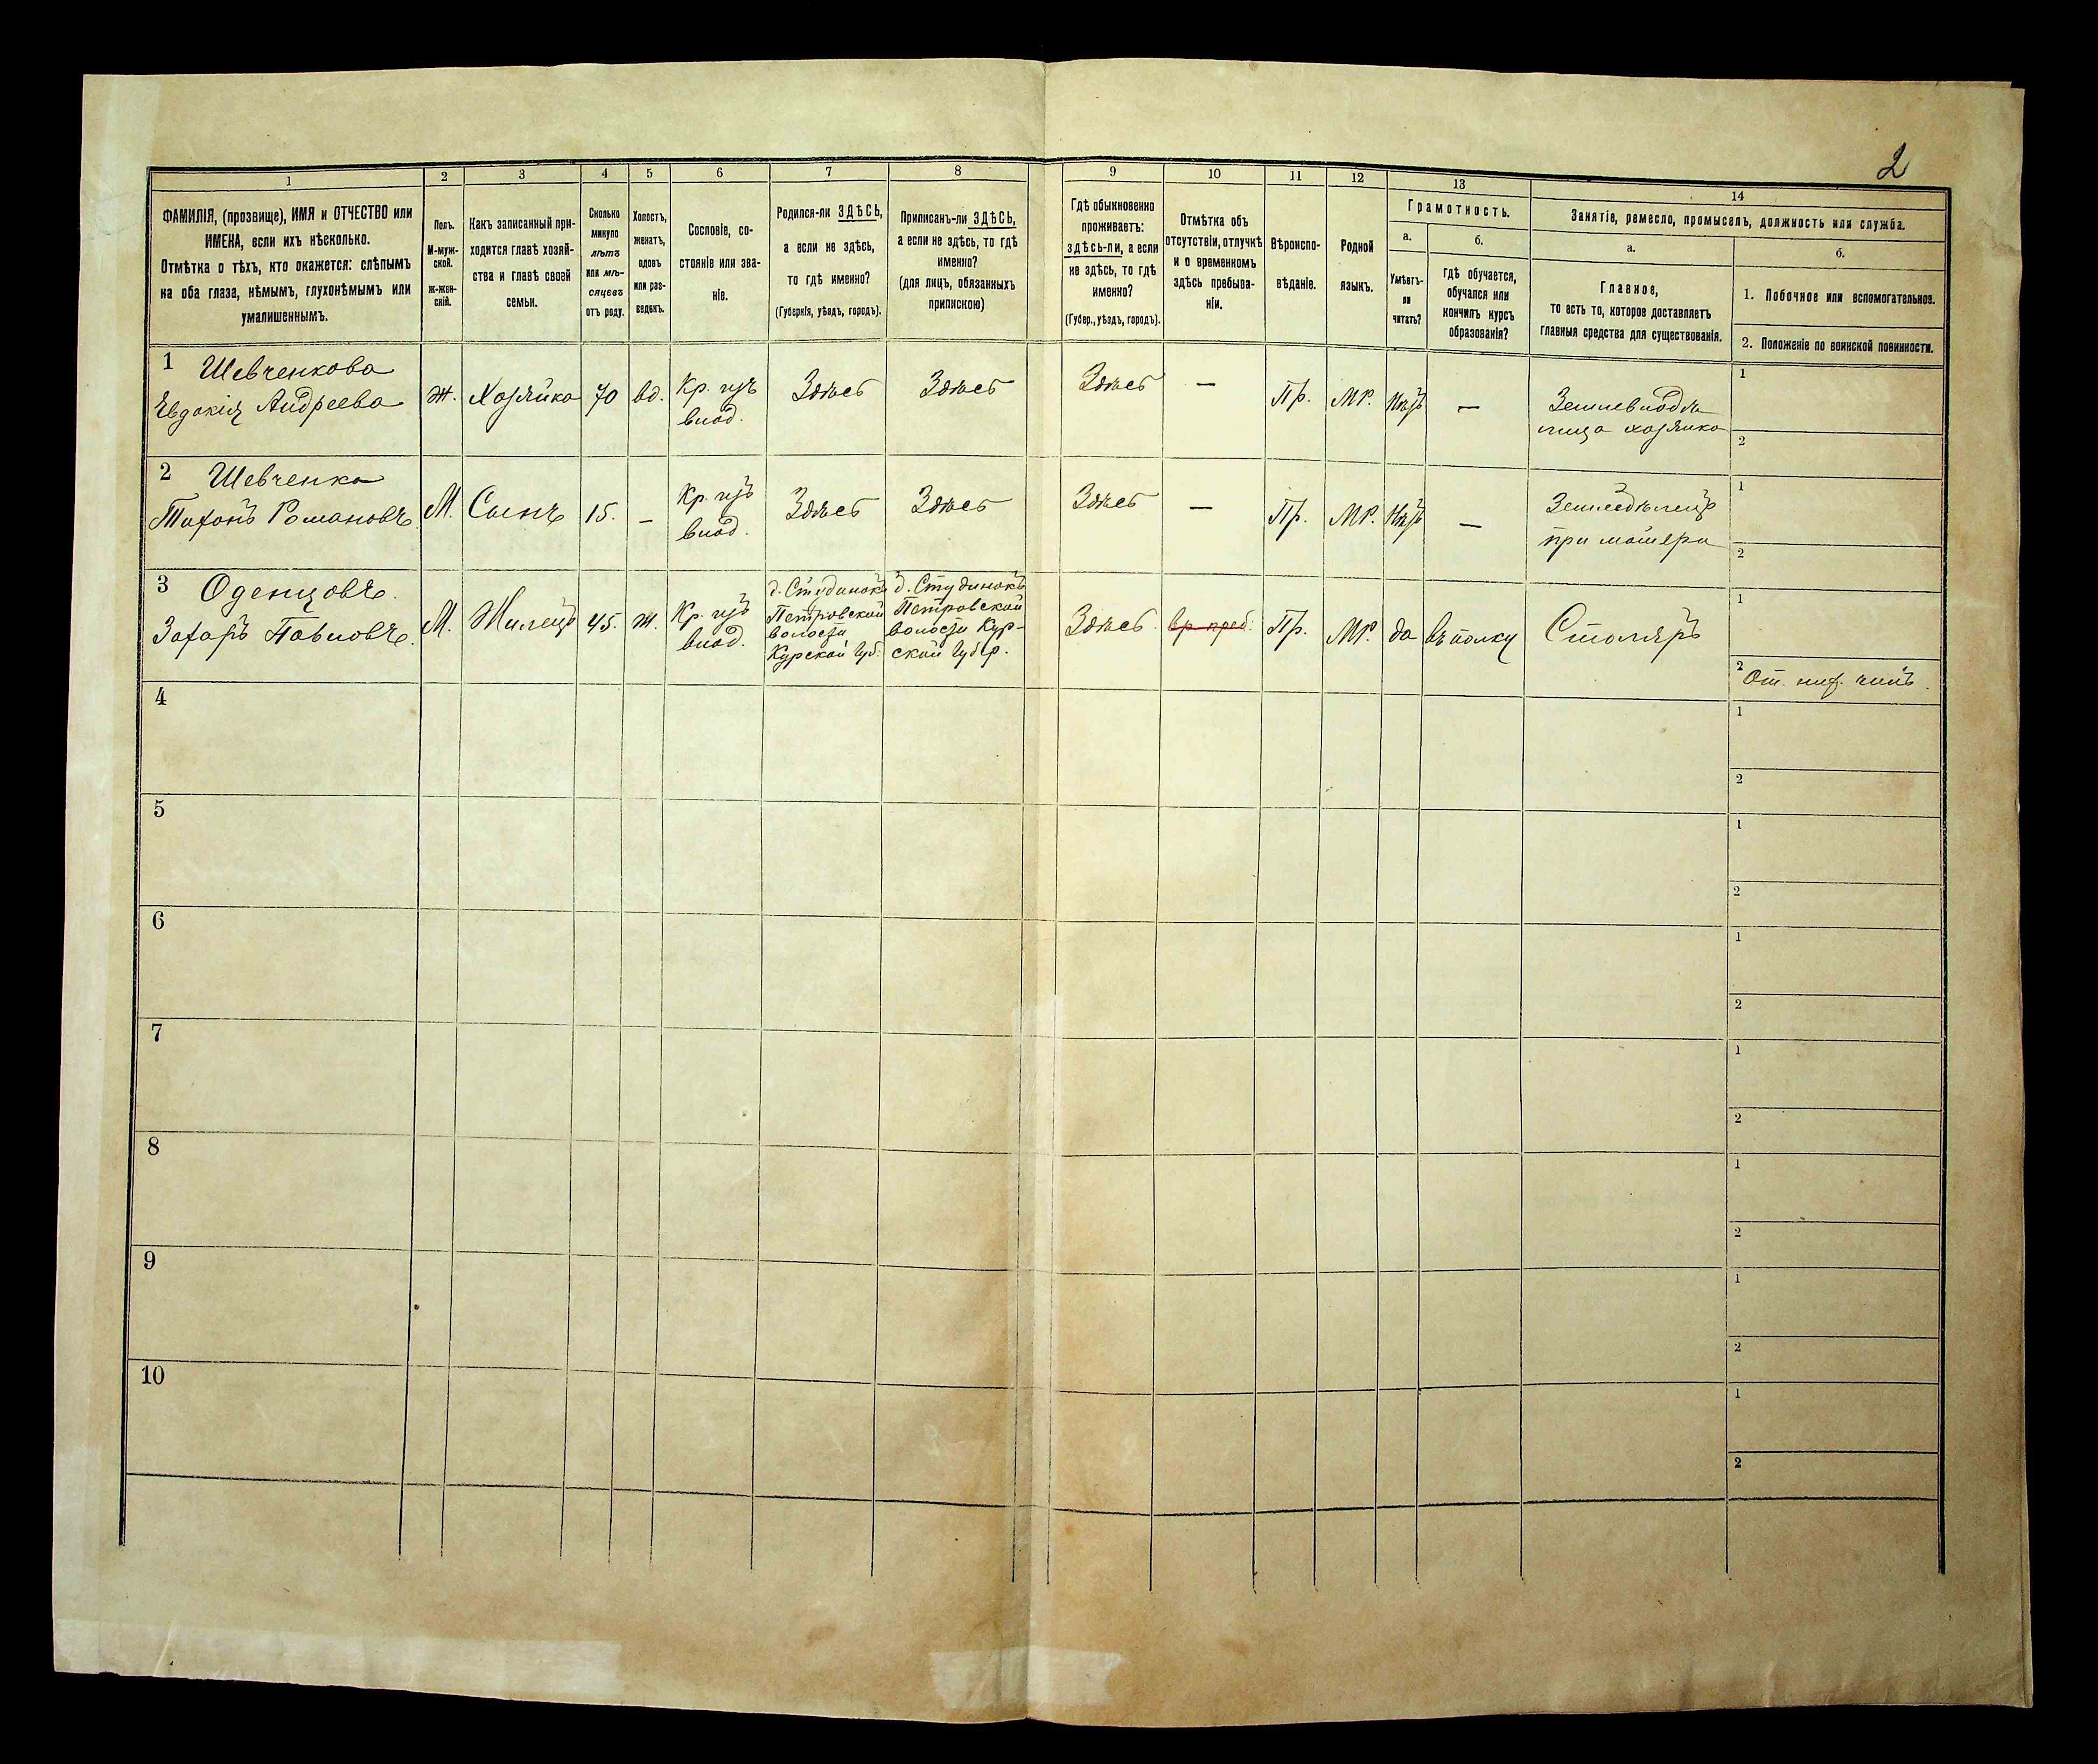 2
1
2
3
4
5
6
7
8
9
10
11
12
13
14
ФАМИЛІЯ, (прозвище), ИМЯ и ОТЧЕСТВО или
ИМЕНА, если ихъ нѣсколько.
Отмѣтка о тѣхъ, кто окажется: слѣпымъ
на оба глаза, нѣмымъ, глухонѣмымъ или
умалишеннымъ.
Полъ.
М-муж-
ской.
ж-жен-
скій.
Какъ записанный при-
ходится главѣ хозяй-
ства и главѣ своей
семьи.
Сколько
минуло
лѣтъ
или мѣ-
сяцевъ
отъ роду.
Холостъ,
женатъ,
вдовъ
или раз-
веденъ.
Сословіе, со-
стояніе или зва-
ніе.
Родился-ли ЗДѢСЬ,
а если не здѣсь,
то гдѣ именно?
(Губернія, уѣздъ, городъ).
Приписанъ-ли ЗДѢСЬ,
а если не здѣсь, то гдѣ
именно?
(для лицъ, обязанныхъ
припискою)
Гдѣ обыкновенно
проживаетъ:
здѣсь-ли, а если
не здѣсь, то гдѣ
именно?
(Губер., уѣздъ, городъ).
Отмѣтка объ
отсутствіи, отлучкѣ
и о временномъ
здѣсь пребыва-
ніи.
Вѣроиспо-
вѣданіе.
Родной
языкъ.
Грамотность.
а.
Умѣетъ-
ли
читать?
б.
гдѣ обучается,
обучался или
кончилъ курсъ
образованія?
Занятіе, ремесло, промыселъ, должность или служба.
а.
Главное,
то есть то, которое доставляетъ
главныя средства для существованія.
б.
1. Побочное или вспомогательное.
2. Положеніе по воинской повинности.
1 Шевченкова
Евдокія Андреева
Ж.
Хозяйка
70
вд.
Кр. изъ
влад.
Здѣсь
Здѣсь
Здѣсь
—
Пр.
МР.
Нѣтъ
—
хозяйка
1
2
2 Шевченко
Тихонъ Романовъ
М.
Сынъ
15.
—
Кр. изъ
влад.
Здѣсь
Здѣсь
Здѣсь
—
Пр.
МР.
Нѣтъ
—
Земледѣлецъ
при матери
1
2
3 Оденцовъ.
Захаръ Павловъ.
М.
Жилецъ
45.
Ж.
Кр. изъ
влад.
д. Студинокъ
Петровской
волости
Курской Губ.
д. Студинокъ
Петровской
волости Кур-
ской Губр.
Здѣсь.
Вр. преб.
Пр.
МР.
да
въ полку
Столяръ
1
2 От. ниж. чинъ.
4
1
2
5
1
2
6
1
2
7
1
2
8
1
2
9
1
2
10
1
2